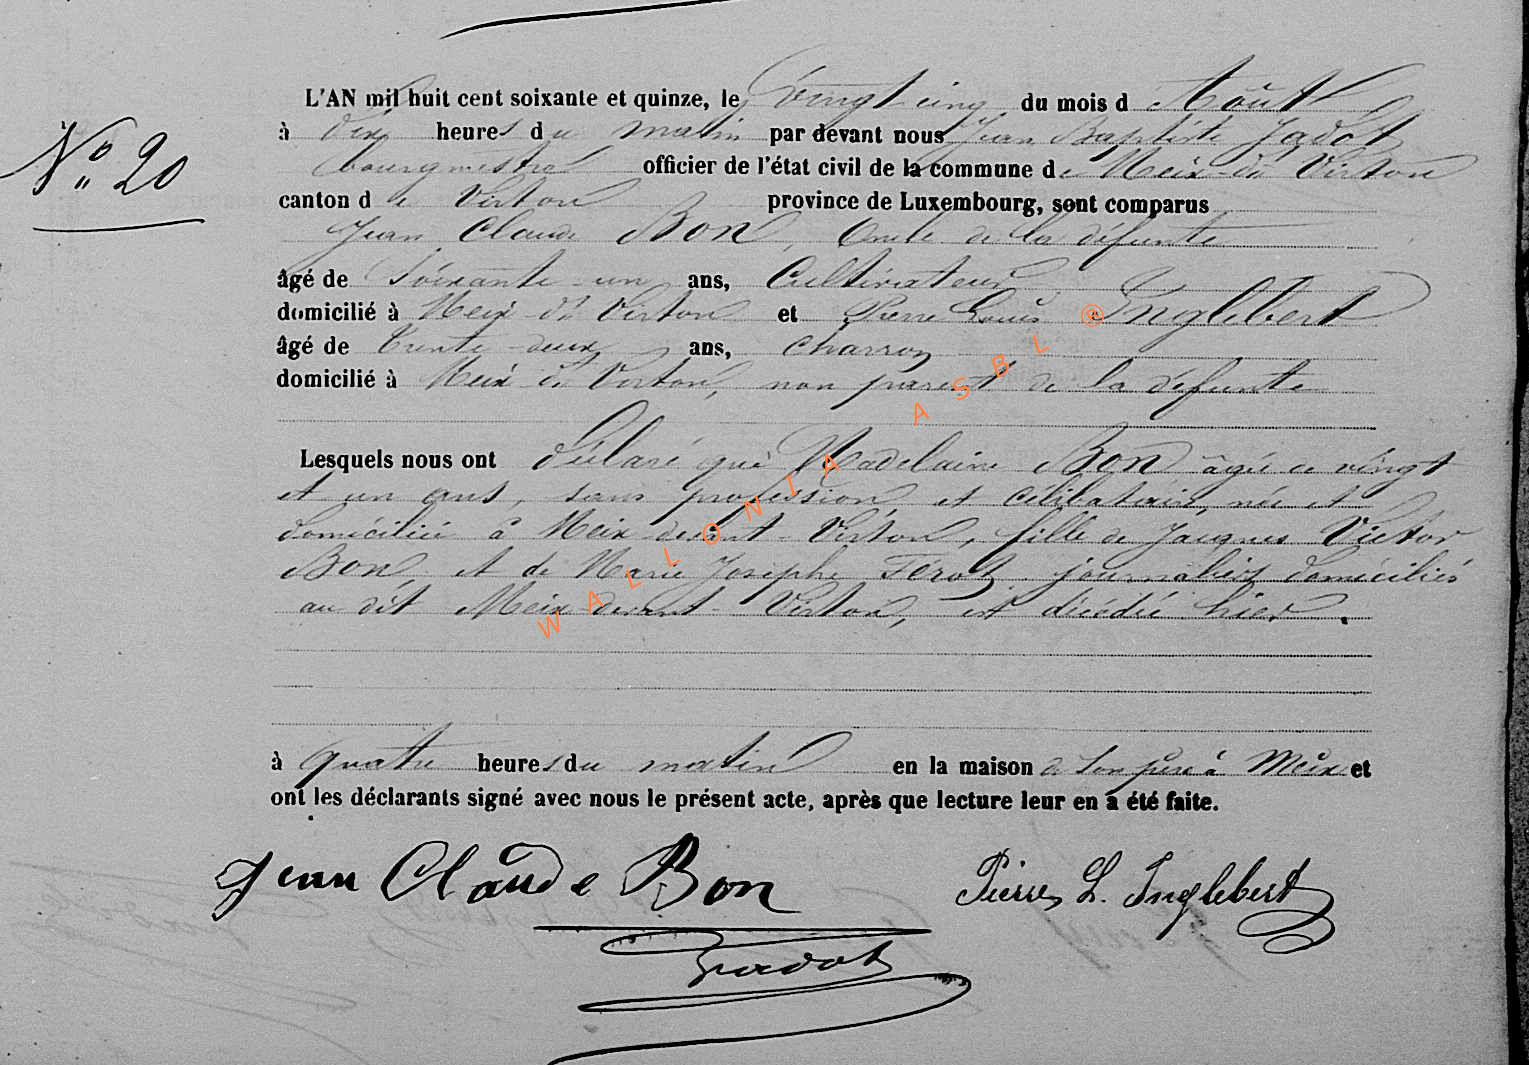 N° 20
L'AN mil huit cent soixante et quinze, le vingt cinq du mois d'Août
à dix heures du matin par devant nous Jean Baptiste Jadot
bourgmestre officier de l'état civil de la commune de Meix-dt Virton
canton de Virton province de Luxembourg, sont comparus
Jean Claude Bon, Oncle de la défunte
âgé de soixante-un ans, Cultivateur
domicilié à Meix-dt Virton et Pierre Louis Inglebert
âgé de trente-deux ans, charron
domicilié à Meix dt Virton, non parent de la défunte
Lesquels nous ont déclaré que Madelaine Bon âgée de vingt
et un ans, sans profession et célibataire, née et
domiciliée à Meix devant-Virton, fille de Jacques Victor
Bon et de Marie Josephe Férot journaliers domiciliés
au dit Meix-devant-Virton, est décédée hier.
à quatre heures du matin en la maison de son père à Meix et
ont les déclarants signé avec nous le présent acte, après que lecture leur en a été faite.
Jean Claude Bon
Pierre L. Inglebert
Jadot
WALLONIA ASBL ®